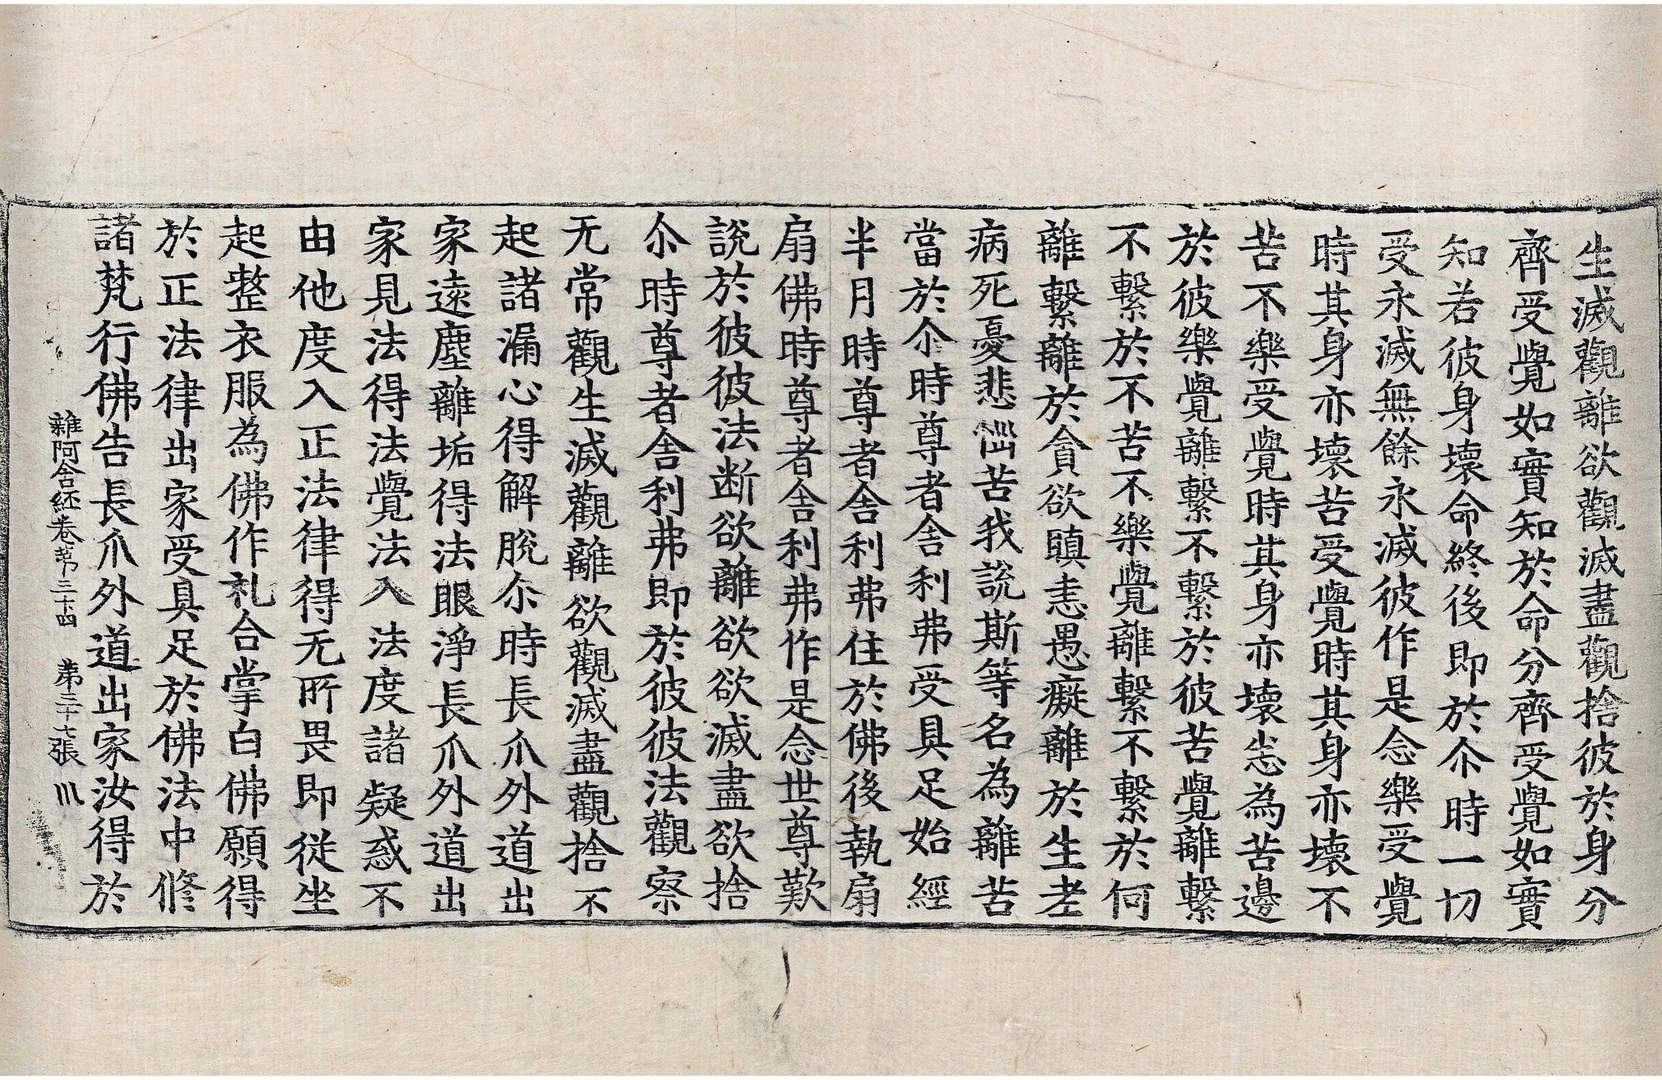 生滅觀離欲觀滅盡觀捨彼於身分
齊受覺如實知於命分齊受覺如實
知若彼身壞命終後即於尒時一切
受永滅無餘永滅彼作是念樂受覺
時其身亦壞苦受覺時其身亦壞不
苦不樂受覺時其身亦壞悉為苦邊
於彼樂覺離繫不繫於彼苦覺離繫
不繫於不苦不樂覺離繫不繫於何
離繫離於貪欲瞋恚愚癡離於生老
病死憂悲惱苦我說斯等名為離苦
當於尒時尊者舍利弗受具足始經
半月時尊者舍利弗住於佛後執扇
扇佛時尊者舍利弗作是念世尊歎
說於彼彼法断欲離欲欲滅盡欲捨
尒時尊者舍利弗即於彼彼法觀察
无常觀生滅觀離欲觀滅盡觀捨不
起諸漏心得解脫尒時長爪外道出
家遠塵離垢得法眼淨長爪外道出
家見法得法覺法入法度諸疑惑不
由他度入正法律得无所畏即從坐
起整衣服為佛作礼合掌白佛願得
於正法律出家受具足於佛法中修
諸梵行佛告長爪外道出家汝得於
雜阿含経卷苐三十四 苐三十七張